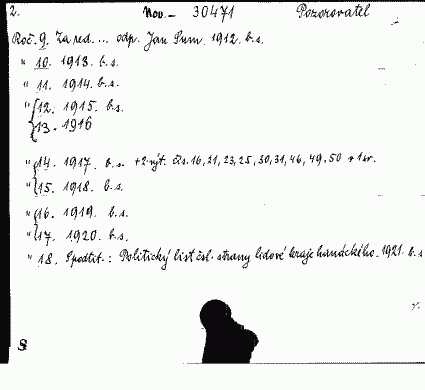 2. Nov. - 30471 Pozorovatel
Roč. 9. Za red. ... odp. Jan Šum. 1912. b.s.
" 10. 1913. b.s.
" 11. 1914. b.s.
" 12. 1915. b.s.
13. 1916
" 14. 1917. b.s. + 2. výt. čís. 16, 21, 23, 25, 30, 31, 46, 49, 50 + 1 sv.
" 15. 1918. b.s.
" 16. 1919. b.s.
" 17. 1920. b.s.
" 18. S podtit.: Politický list čsl. strany lidové kraje hanáckého. 1921. b.s
S